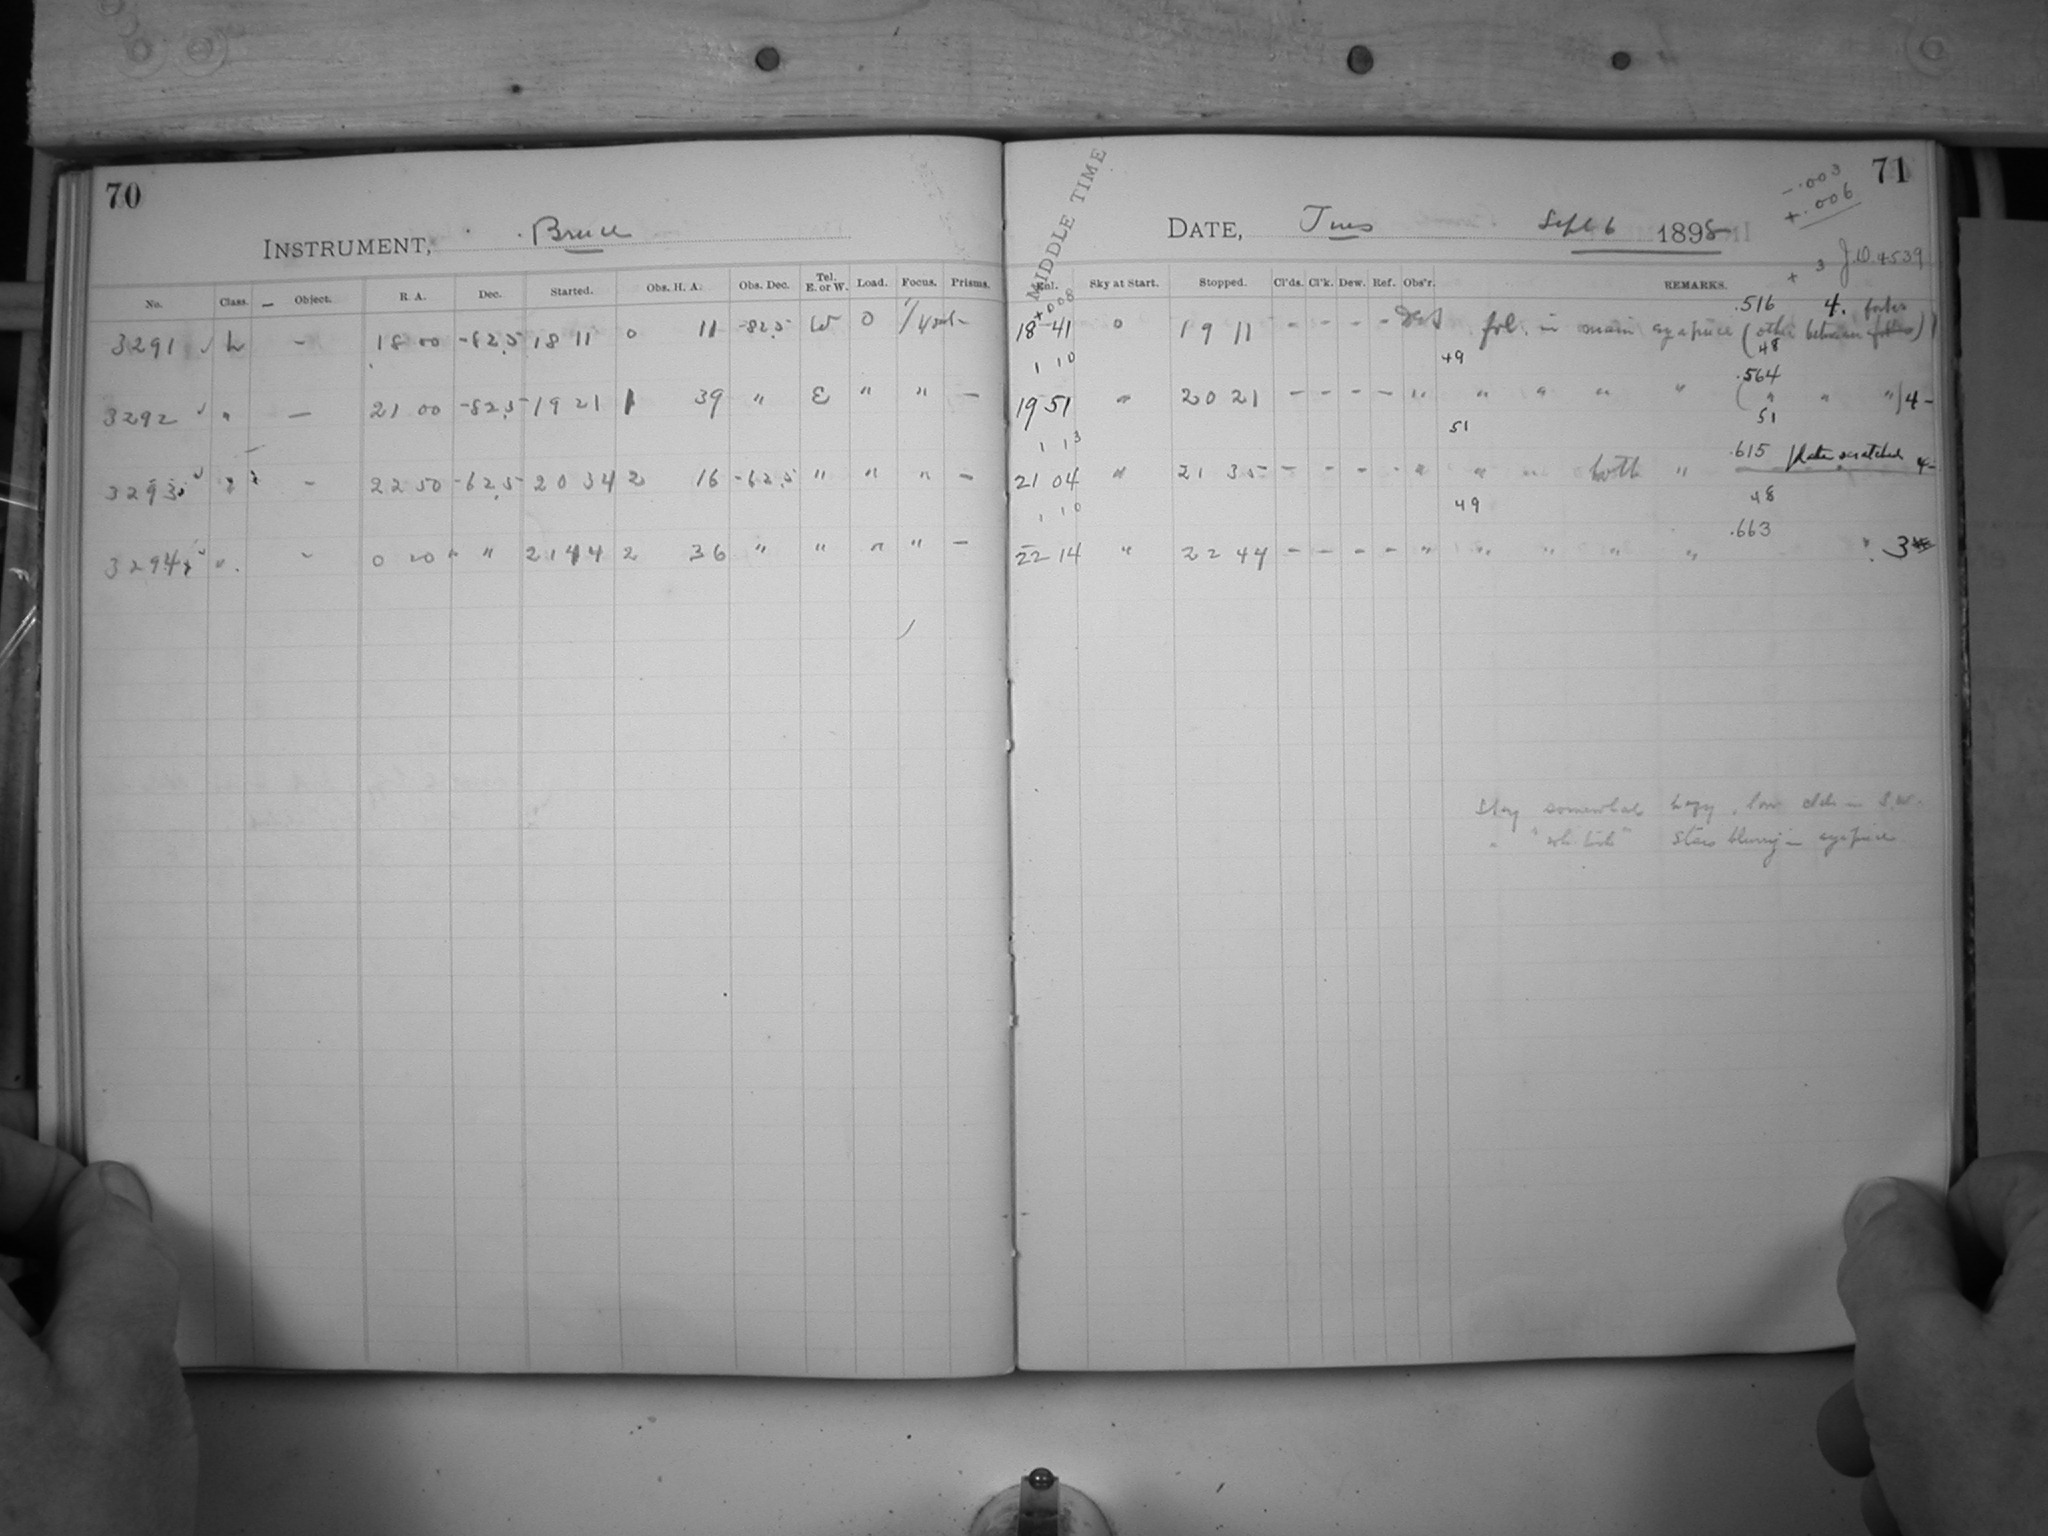 70
INSTRUMENT, Bruce
No. Class. Object. R A. Dec. Started. Obs. H. A. Obs. Dec. Tel. E. or W. Load. Focus. Prisms.
3291 L - 18 00 -82.5 18 11 0 11 -82.5 W 0
3292 " - 21 00 -82.5 19 21 1 39 " E " " -
3293 " - 22 50 -62.5 20 34 2 16 -62.5 " " " -
3294 " - 0 20 " " 21 44 2 36 " " " " -
71
MIDDLE TIME
-.003
+.006
DATE, Tues Sept 6 1898
+ 3 J.D. 4539
Enl. Sky at Start. Stopped. Cl'ds. Cl'k. Dew. Ref. Obs'r. REMARKS.
+008
.516 4.
18 41 0 19 11 - - - - fol. in main eyepiece (other between forks)
1 10 49 48
.564
19 51 " 20 21 - - - - " " " " " ( " " " ) 4-
1 13 51 51
.615 Plate scratched 4-
21 04 " 21 35 - - - - " " " both "
1 10 49 48
.663
22 14 " 22 44 - - - - " " " " " " 3
Sky somewhat hazy, low clds in S.W.
" " Stars blurry in eyepiece